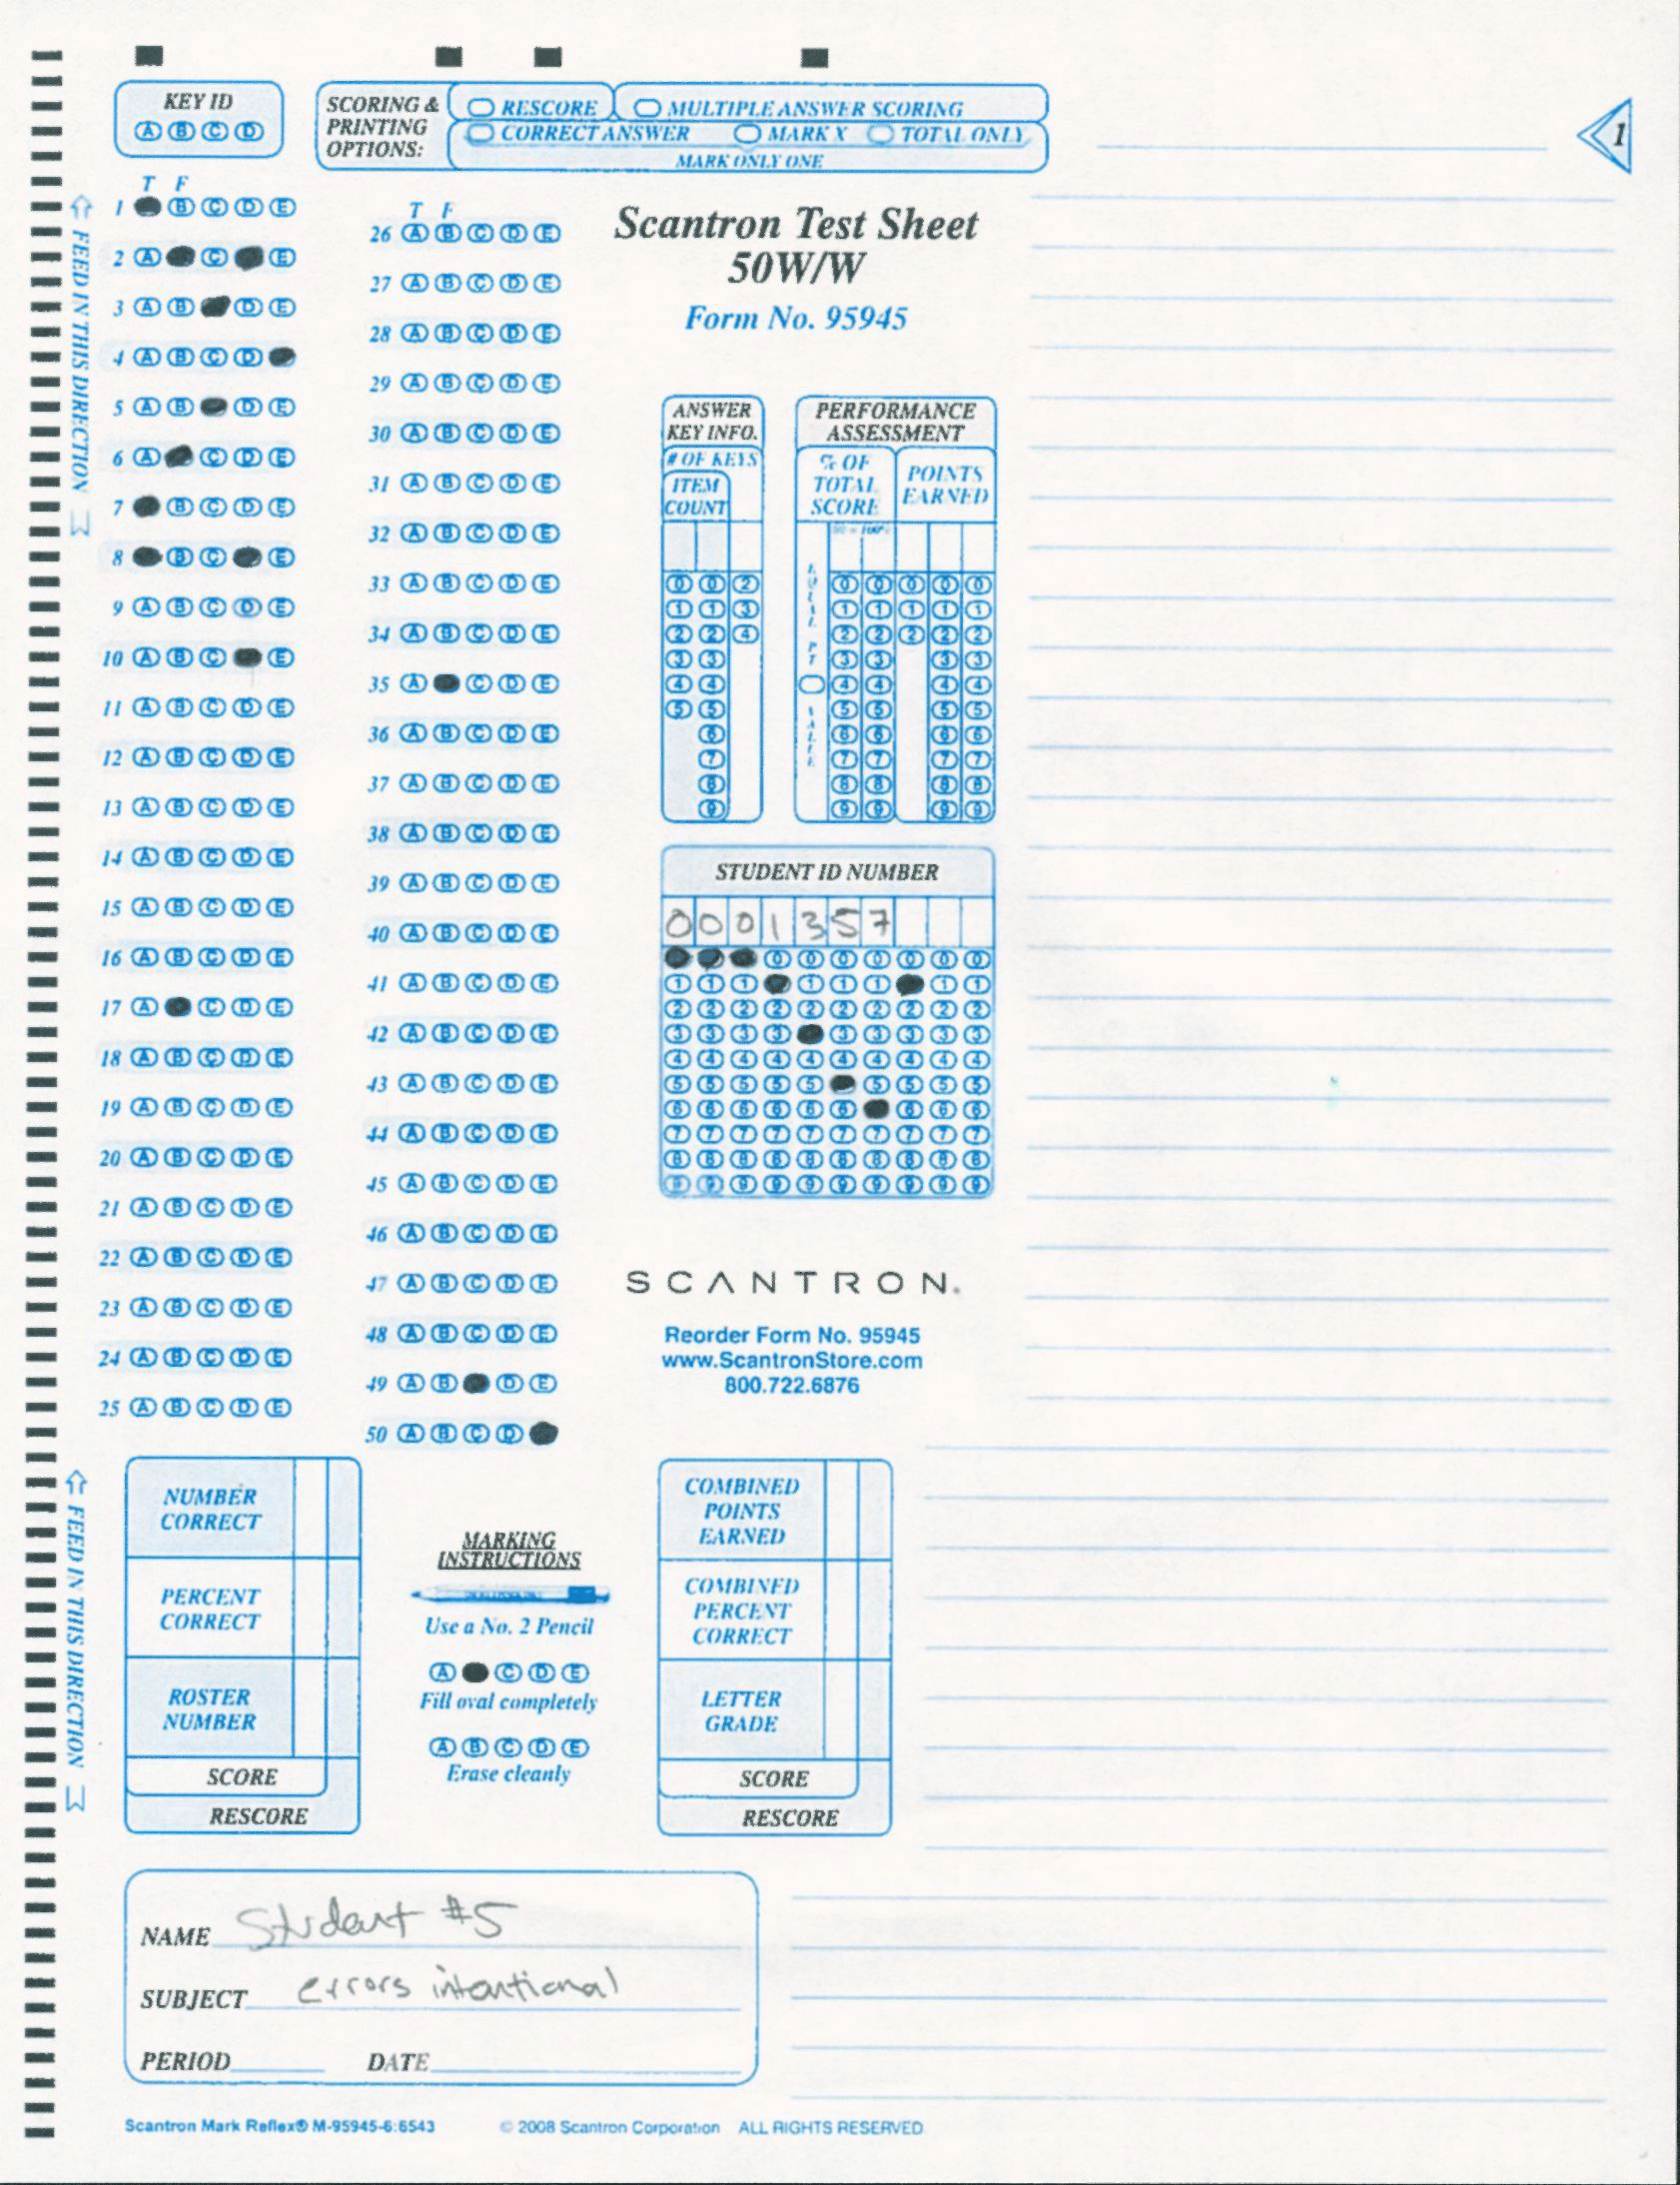 KEY ID
A B C D
SCORING & PRINTING OPTIONS:
RESCORE MULTIPLE ANSWER SCORING
CORRECT ANSWER MARK X TOTAL ONLY
MARK ONLY ONE
1
FEED IN THIS DIRECTION
T F
1 B C D E
2 A C E
3 A B D E
4 A B C D
5 A B D E
6 A C D E
7 B C D E
8 B C E
9 A B C D E
10 A B C E
11 A B C D E
12 A B C D E
13 A B C D E
14 A B C D E
15 A B C D E
16 A B C D E
17 A C D E
18 A B C D E
19 A B C D E
20 A B C D E
21 A B C D E
22 A B C D E
23 A B C D E
24 A B C D E
25 A B C D E
T F
26 A B C D E
27 A B C D E
28 A B C D E
29 A B C D E
30 A B C D E
31 A B C D E
32 A B C D E
33 A B C D E
34 A B C D E
35 A C D E
36 A B C D E
37 A B C D E
38 A B C D E
39 A B C D E
40 A B C D E
41 A B C D E
42 A B C D E
43 A B C D E
44 A B C D E
45 A B C D E
46 A B C D E
47 A B C D E
48 A B C D E
49 A B D E
50 A B C D
Scantron Test Sheet
50W/W
Form No. 95945
ANSWER
KEY INFO.
# OF KEYS
ITEM
COUNT
0 0 2
1 1 3
2 2 4
3 3
4 4
5 5
6
7
8
9
PERFORMANCE
ASSESSMENT
% OF
TOTAL
SCORE
POINTS
EARNED
EQUAL PT VALUE
0 0 0 0 0
1 1 1 1 1
2 2 2 2 2
3 3 3 3
4 4 4 4
5 5 5 5
6 6 6 6
7 7 7 7
8 8 8 8
9 9 9 9
STUDENT ID NUMBER
0 0 0 1 3 5 7
0 0 0 0 0 0 0
1 1 1 1 1 1 1 1
2 2 2 2 2 2 2 2 2 2
3 3 3 3 3 3 3 3 3
4 4 4 4 4 4 4 4 4 4
5 5 5 5 5 5 5 5 5
6 6 6 6 6 6 6 6 6
7 7 7 7 7 7 7 7 7 7
8 8 8 8 8 8 8 8 8 8
9 9 9 9 9 9 9 9 9 9
SCANTRON.
Reorder Form No. 95945
www.ScantronStore.com
800.722.6876
FEED IN THIS DIRECTION
NUMBER
CORRECT
PERCENT
CORRECT
ROSTER
NUMBER
SCORE
RESCORE
MARKING
INSTRUCTIONS
Use a No. 2 Pencil
A C D E
Fill oval completely
A B C D E
Erase cleanly
COMBINED
POINTS
EARNED
COMBINED
PERCENT
CORRECT
LETTER
GRADE
SCORE
RESCORE
NAME Student #5
SUBJECT errors intentional
PERIOD DATE
Scantron Mark Reflex® M-95945-6:6543 © 2008 Scantron Corporation ALL RIGHTS RESERVED